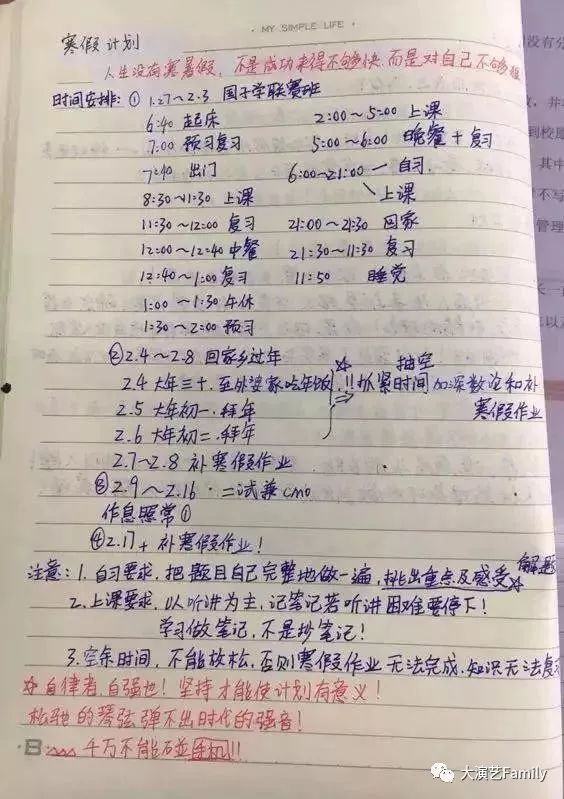 · MY SIMPLE LIFE ·
寒假计划
人生没有寒暑假,不是成功来得不够快,而是对自己不够狠
时间安排:① 1.27~2.3 国子学联赛班
6:40 起床 2:00~5:00 上课
7:00 预习复习 5:00~6:00 晚餐+复习
7:40 出门 6:00~21:00 — 自习
8:30~11:30 上课 上课
11:30~12:00 复习 21:00~21:30 回家
12:00~12:40 中餐 21:30~11:30 复习
12:40~1:00 复习 11:50 睡觉
1:00~1:30 午休
1:30~2:00 预习
② 2.4~2.8 回家乡过年 ☆ 抽空
2.4 大年三十.至外婆家吃年饭 !!抓紧时间加深数论和补
2.5 大年初一.拜年 ⇒ 寒假作业
2.6 大年初二.拜年
2.7~2.8 补寒假作业
③ 2.9~2.16 · 二试兼cmo
作息照常①
④ 2.17+ 补寒假作业!
注意:1.自习要求,把题目自己完整地做一遍,挑出重点及感受☆解题
2.上课要求,以听讲为主,记笔记若听讲困难要停下!
学习做笔记,不是抄笔记!
3.空余时间,不能放松,否则寒假作业无法完成,知识无法复习
☆自律者,自强也!坚持才能使计划有意义!
松弛的琴弦弹不出时代的强音!
B: 千万不能碰手机!!
大演艺Family
没有分
到校愿
其中
不写
管理